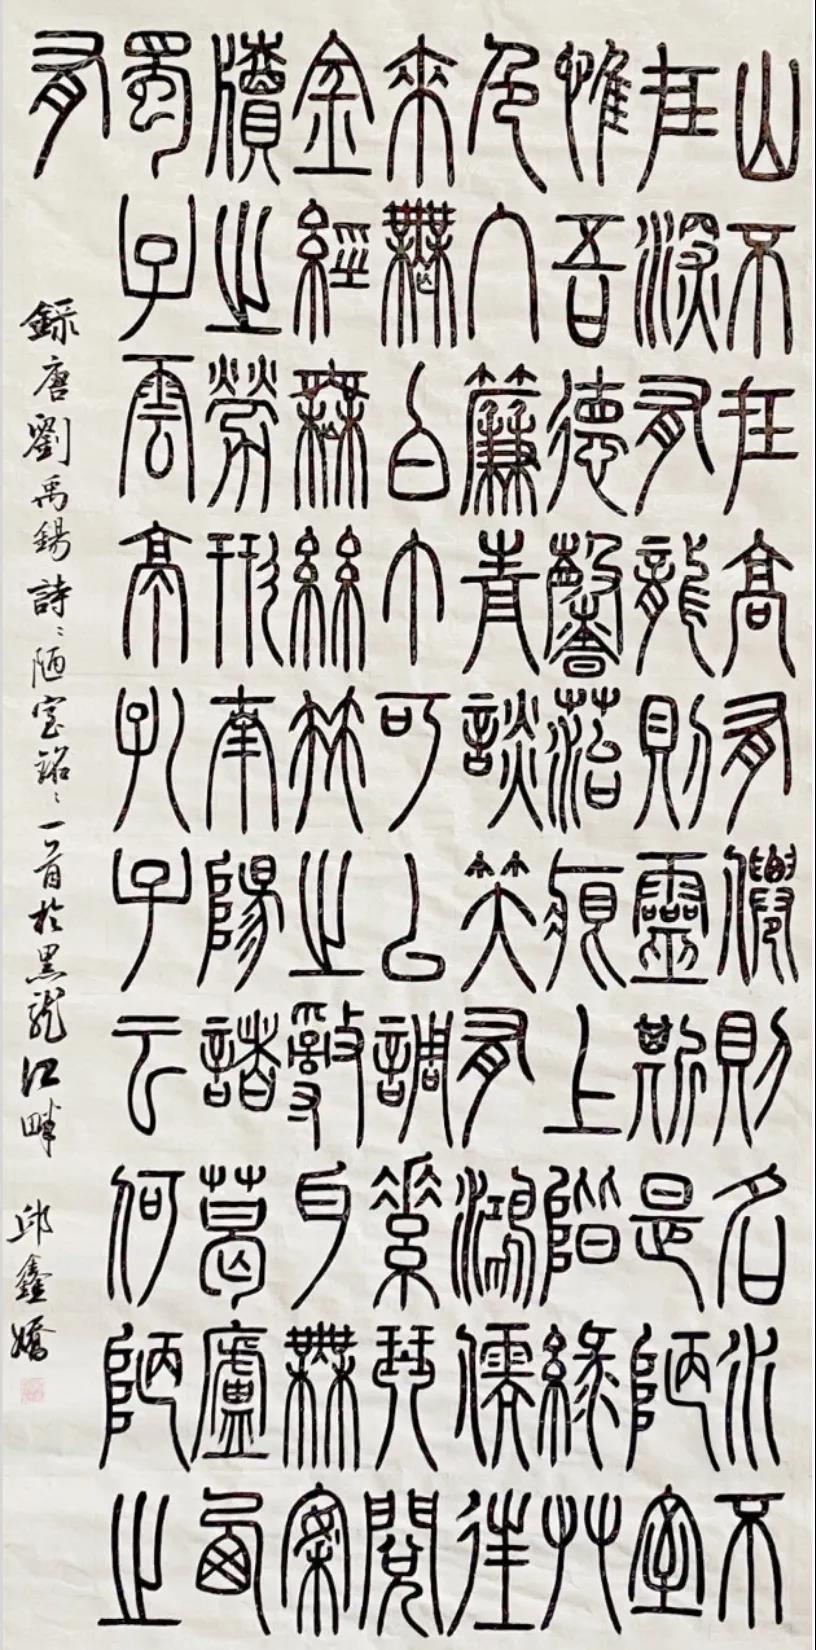 山不在高有僊則名水不
在深有龍則靈斯是陋室
惟吾德馨菭痕上階緣艸
色入簾青談笑有鴻儒往
來無白丁可以調素琴閱
金經無絲竹之亂耳無案
牘之勞形南陽諸葛廬西
蜀子雲亭孔子云何陋之
有
錄唐劉禹錫詩陋室銘一首於黑龍江畔 邱鑫嬌